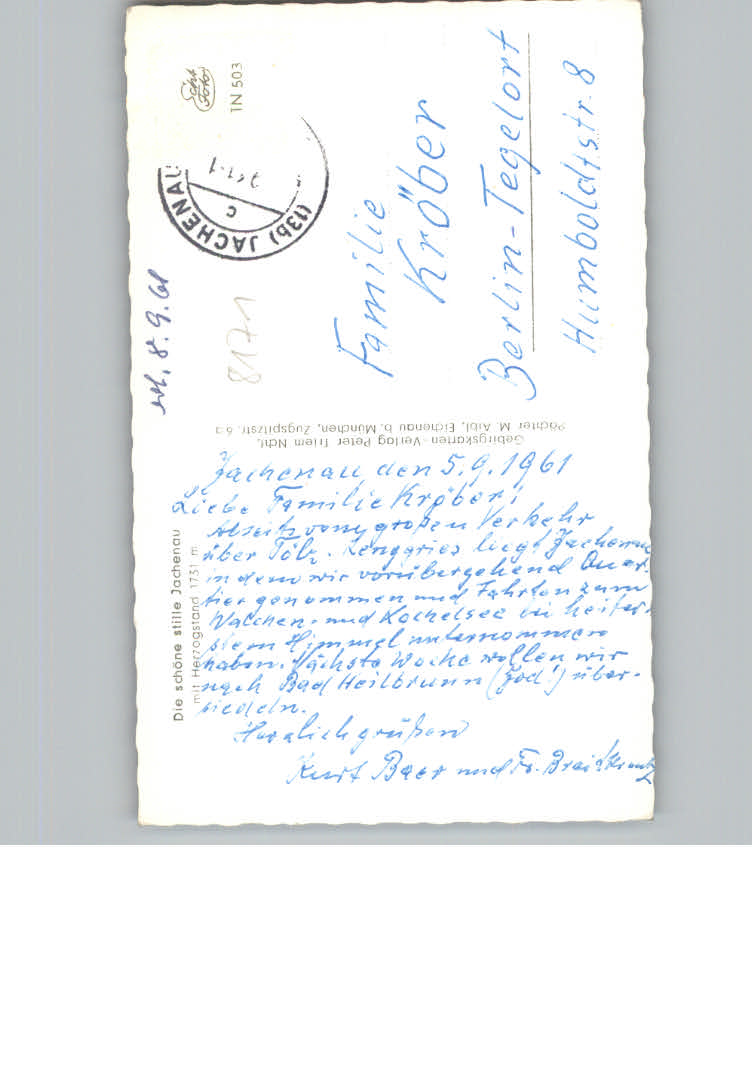 Jachenau den 5.9.1961
Liebe Familie Kröber!
Abseits vom großen Verkehr
über Tölz. Lenggries liegt Jachenau
in dem wir vorübergehend Quar-
tier genommen und Fahrten zum
Walchen- und Kochelsee bei heiter-
stem Himmel unternommen
haben. Nächste Woche wollen wir
nach Bad Heilbrunn (Jod!) über-
siedeln.
Herzlich grüßen
Kurt Baer und Fr.
Die schöne stille Jachenau
mit Herzogstand 1731 m
Gebirgskarten-Verlag Peter Triem Nchf.
Pächter M. Aibl, Eichenau b. München, Zugspitzstr. 6a
erh. 8.9.61
8171
(13b) JACHENAU
c
Foto
TN 503
Familie
Kröber
Berlin-Tegelort
Humboldtstr. 8